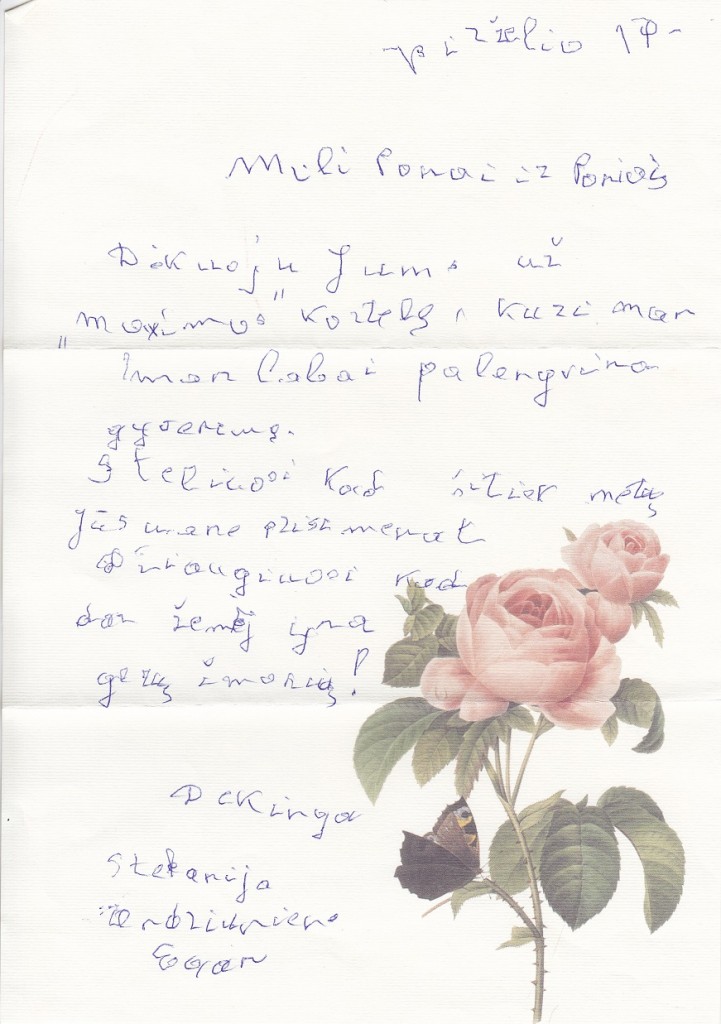 birželio 17-
Mieli Ponai iz Ponios
Dėkuoju Jums už
„Maximos" kortelę, kuri man
labai palengvina
gyvenimą.
Stebiuosi kad šitiek metų
Jūs mane prisimenat
Džiaugiuosi kad
dar žemėj yra
gerų žmonių!
Dėkinga
Stefanija